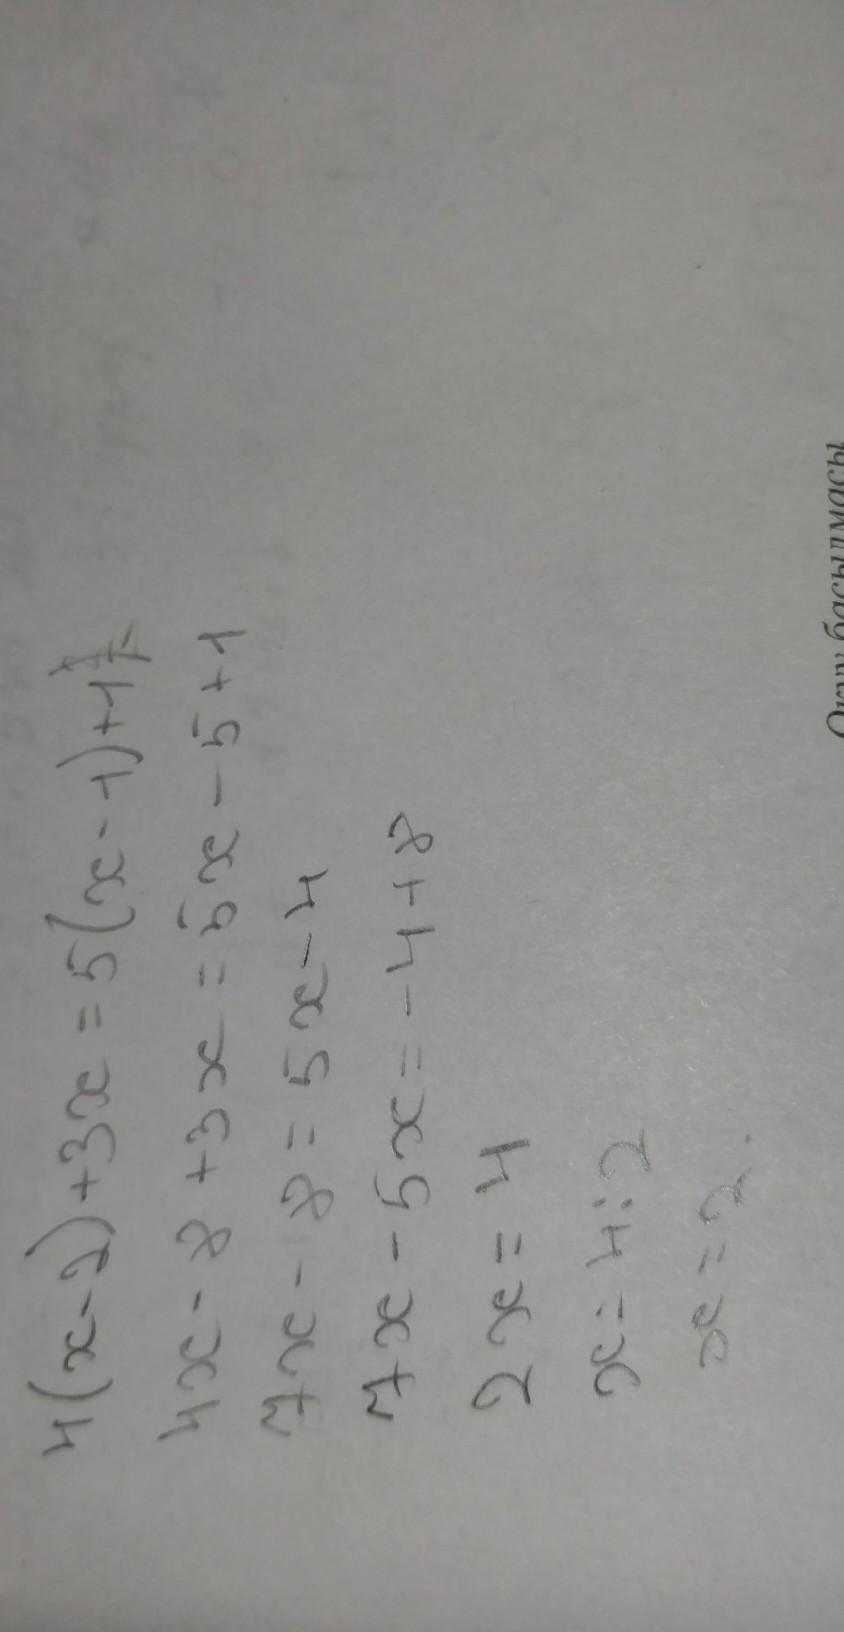 4(x-2)+3x=5(x-1)+1
4x-8+3x=5x-5+1
7x-8=5x-4
7x-5x=-4+8
2x=4
x=4:2
x=2.
Окуу басылмасы